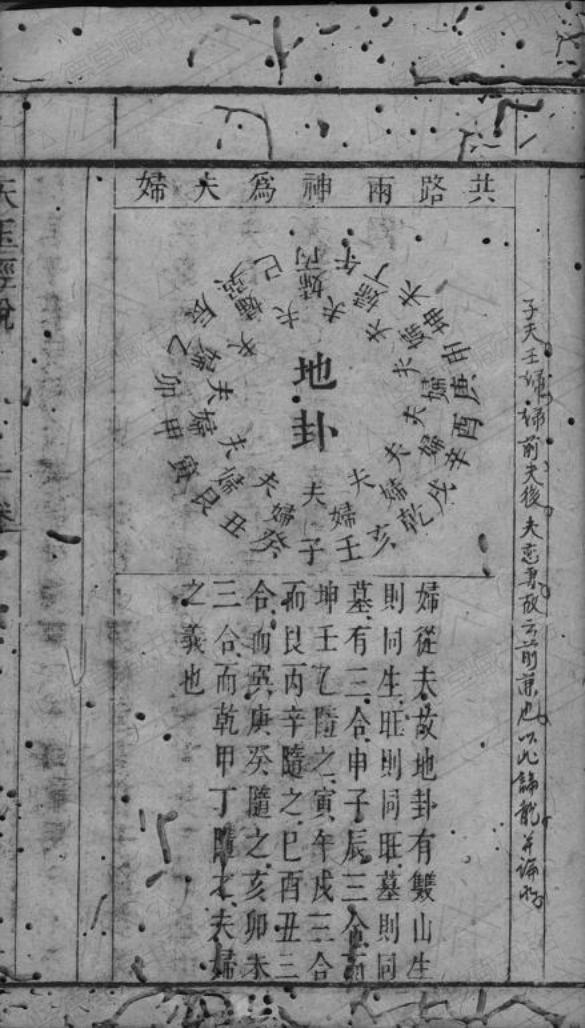 子夫壬婦婦前夫後夫恋妻故云前兼也以此論龍并論
共路兩神爲夫婦
地卦
子癸丑艮寅甲卯乙辰巽巳丙午丁未坤申庚酉辛戌乾亥壬
夫婦夫婦夫婦夫婦夫婦夫婦夫婦夫婦夫婦夫婦夫婦夫婦
婦從夫故地卦有雙山生
則同生旺則同旺墓則同
墓有三合申子辰三合而
坤壬乙隨之寅午戌三合
而艮丙辛隨之巳酉丑三
合而巽庚癸隨之亥卯未
三合而乾甲丁隨之夫婦
之義也
天玉經說 卷